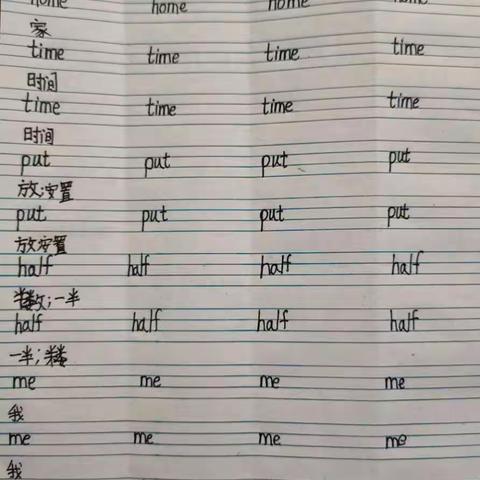 home home home home
家
time time time time
时间
time time time time
时间
put put put put
放;安置
put put put put
放安置
half half half half
半数;一半
half half half half
一半;半数
me me me me
我
me me me me
我